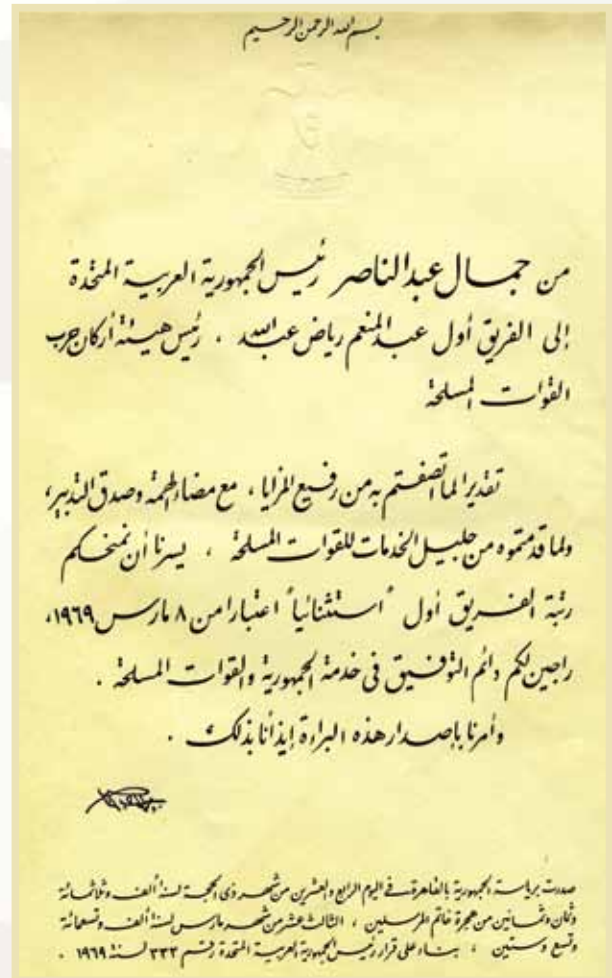 بسم الله الرحمن الرحيم
من جمال عبد الناصر رئيس الجمهورية العربية المتحدة
إلى الفريق أول عبد المنعم رياض عبد الله ، رئيس هيئة أركان حرب
القوات المسلحة
تقديرا لما اتصفتم به من رفيع المزايا ، مع مضاء الهمة وصدق التدبير،
ولما قدمتموه من جليل الخدمات للقوات المسلحة ، يسرنا أن نمنحكم
رتبة الفريق أول "استثنائيا" اعتبارا من ٨ مارس ١٩٦٩،
راجين لكم دائم التوفيق فى خدمة الجمهورية والقوات المسلحة .
وأمرنا بإصدار هذه البراءة إيذانا بذلك .
صدرت برياسة الجمهورية بالقاهرة فى اليوم الرابع والعشرين من شهر ذى الحجة لسنة ألف وثلاثمائة
وثمان وثمانين من هجرة خاتم المرسلين ، الثالث عشر من شهر مارس لسنة ألف وتسعمائة
وتسع وستين ، بناء على قرار رئيس الجمهورية العربية المتحدة رقم ٣٣٣ لسنة ١٩٦٩ .